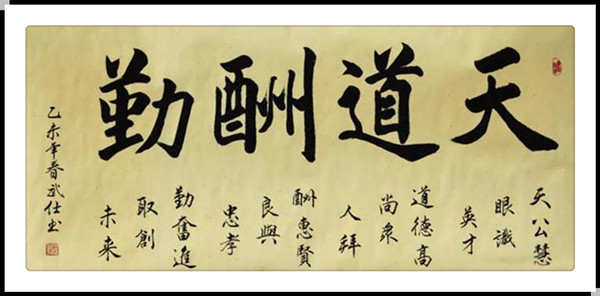 天道酬勤
天公慧
眼識
英才
道德高
尚衆
人拜
酬惠賢
良與
忠孝
勤奮進
取創
未来
乙未年春武仕书